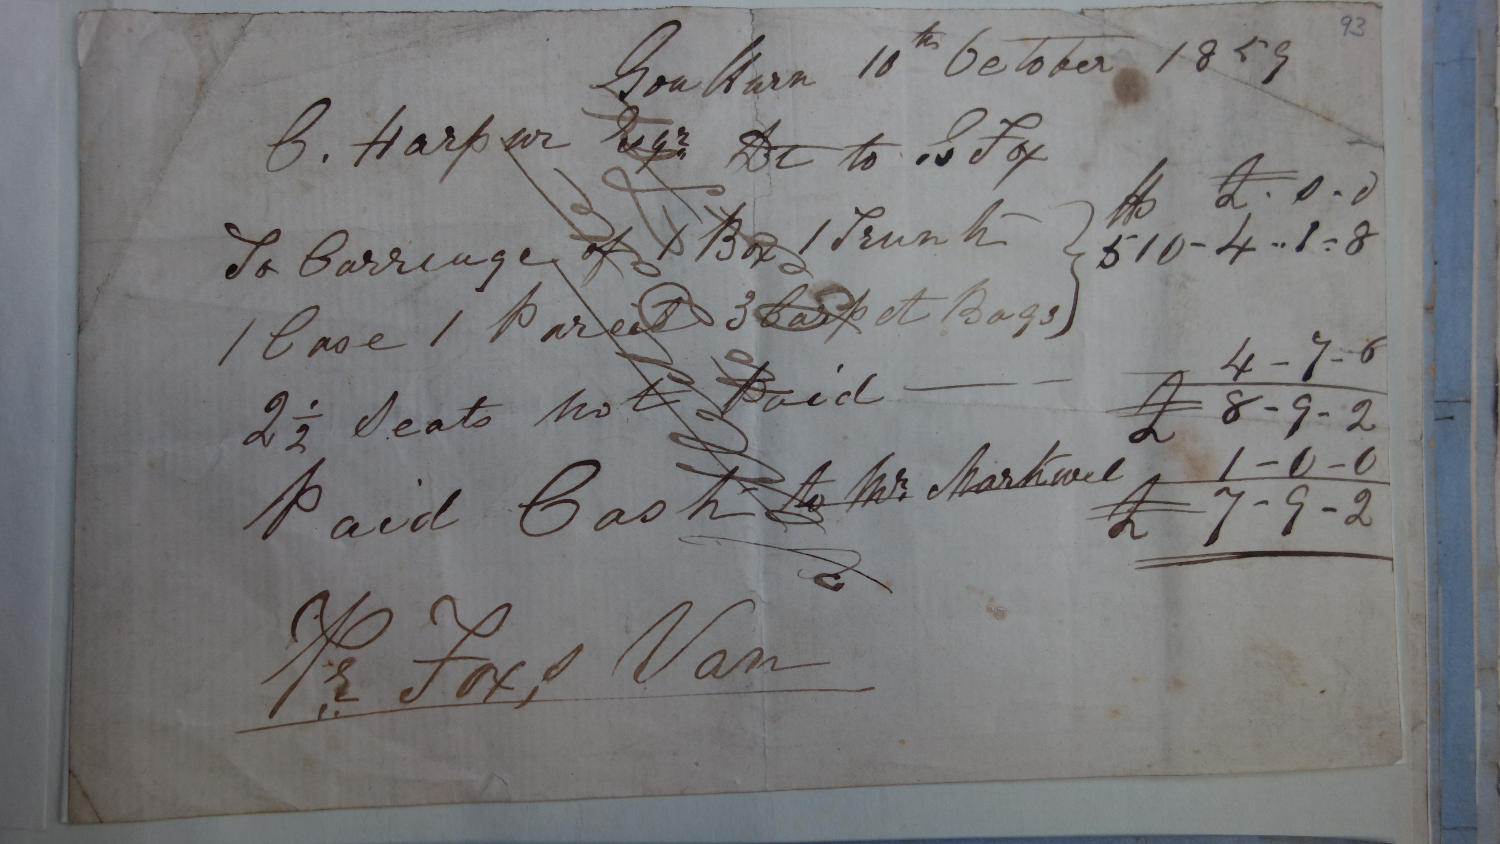 93
Goulburn 10th October 1859
C. Harpur Esqr. Dr to G Fox
lbs £ - s - d
To Carreage of 1 Box 1 Trunk
510 - 4 - 1 - 8
1 Case 1 Parcel 3 Carpet Bags
2 1/2 Seats not Paid 4 - 7 - 6
£ 8 - 9 - 2
Paid Cash to Mr. Markwel 1 - 0 - 0
£ 7 - 9 - 2
Pr. Fox,s Van